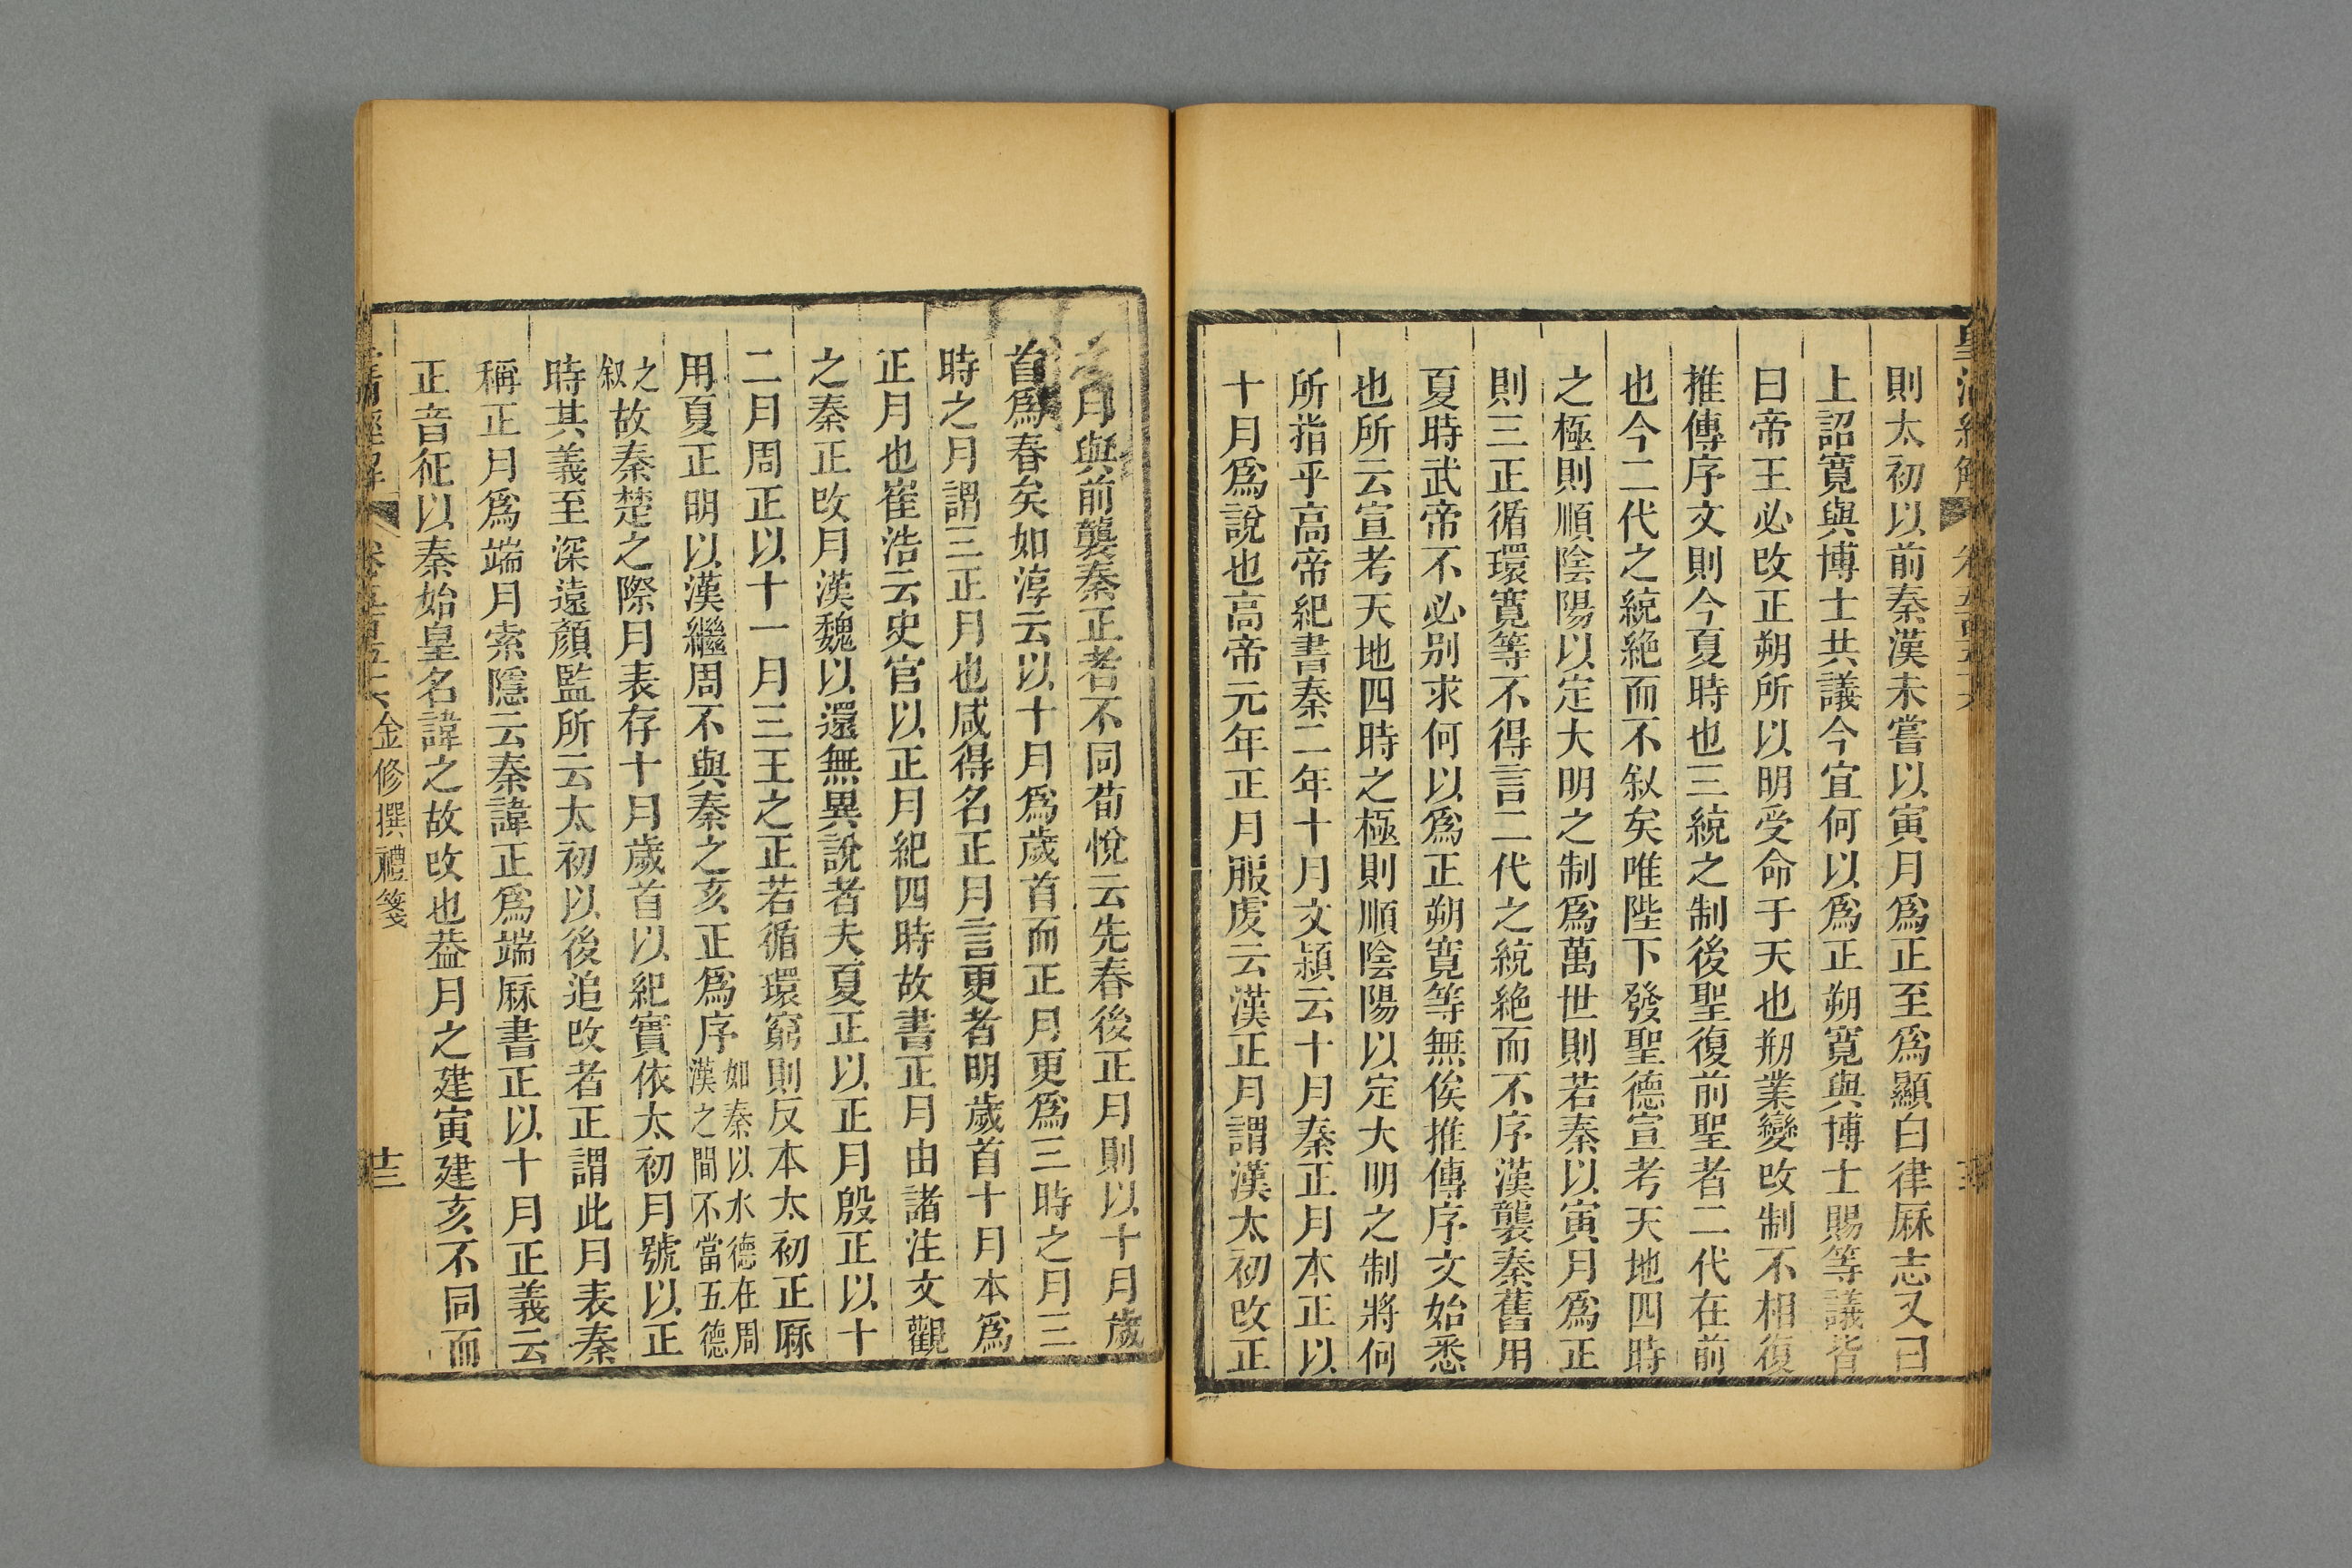 則太初以前秦漢未嘗以寅月爲正至爲顯白律厤志又曰
上詔寬與博士共議今宜何以爲正朔寬與博士賜等議皆
曰帝王必改正朔所以明受命于天也剏業變改制不相復
推傳序文則今夏時也三統之制後聖復前聖者二代在前
也今二代之統絶而不叙矣唯陛下發聖德宣考天地四時
之極則順陰陽以定大明之制爲萬世則若秦以寅月爲正
則三正循環寬等不得言二代之統絶而不序漢襲秦舊用
夏時武帝不必别求何以爲正朔寬等無俟推傳序文始悉
也所云宣考天地四時之極則順陰陽以定大明之制將何
所指乎高帝紀書秦二年十月文穎云十月秦正月本正以
十月爲說也高帝元年正月服虔云漢正月謂漢太初改正
月與前襲秦正者不同荀悅云先春後正月則以十月歲
首爲春矣如淳云以十月爲歲首而正月更爲三時之月三
時之月謂三正月也咸得名正月言更者明歲首十月本爲
正月也崔浩云史官以正月紀四時故書正月由諸注文觀
之秦正改月漢魏以還無異說者夫夏正以正月殷正以十
二月周正以十一月三王之正若循環窮則反本太初正厤
用夏正明以漢繼周不與秦之亥正爲序如秦以水德在周漢之間不當五德
之叙故秦楚之際月表存十月歲首以紀實依太初月號以正
時其義至深遠顏監所云太初以後追改者正謂此月表秦
稱正月爲端月索隱云秦諱正爲端厤書正以十月正義云
正音征以秦始皇名諱之故改也葢月之建寅建亥不同而
金修撰禮箋